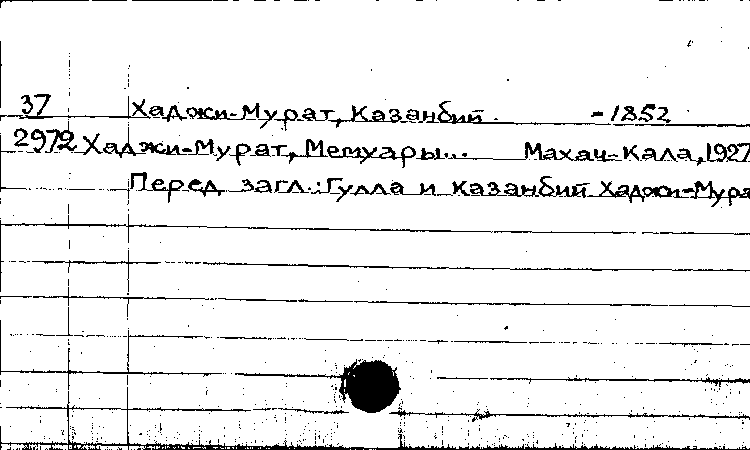 37 Хаджи-Мурат, Казанбий. -1852
2972 Хаджи-Мурат, Мемуары... Махач-Кала, 1927
Перед загл.: Гулла и Казанбий Хаджи-Мура